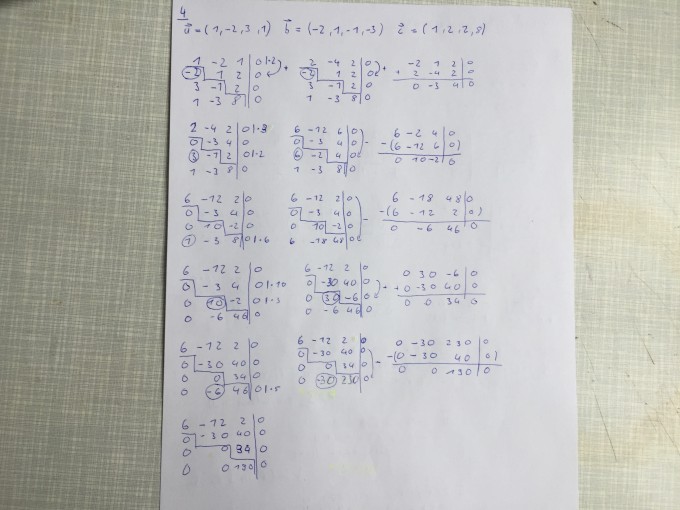 4
a⃗ = (1, -2, 3, 1) b⃗ = (-2, 1, -1, -3) c⃗ = (1, 2, 2, 8)
1 -2 1 | 0 |·2 + 2 -4 2 | 0 + -2 1 2 | 0
-2 1 2 | 0 -2 1 2 | 0 + 2 -4 2 | 0
3 -1 2 | 0 3 -1 2 | 0 0 -3 4 | 0
1 -3 8 | 0 1 -3 8 | 0
2 -4 2 | 0 |·3 6 -12 6 | 0 - 6 -2 4 | 0
0 -3 4 | 0 0 -3 4 | 0 -(6 -12 6 | 0)
3 -1 2 | 0 |·2 6 -2 4 | 0 0 10 -2 | 0
1 -3 8 | 0 1 -3 8 | 0
6 -12 2 | 0 6 -12 2 | 0 - 6 -18 48 | 0
0 -3 4 | 0 0 -3 4 | 0 -(6 -12 2 | 0)
0 10 -2 | 0 0 10 -2 | 0 0 -6 46 | 0
1 -3 8 | 0 |·6 6 -18 48 | 0
6 -12 2 | 0 6 -12 2 | 0 0 30 -6 | 0
0 -3 4 | 0 |·10 0 -30 40 | 0 + 0 -30 40 | 0
0 10 -2 | 0 |·3 0 30 -6 | 0 0 0 34 | 0
0 -6 46 | 0 0 -6 46 | 0
6 -12 2 | 0 6 -12 2 | 0 0 -30 230 | 0
0 -30 40 | 0 0 -30 40 | 0 - -(0 -30 40 | 0)
0 0 34 | 0 0 0 34 | 0 0 0 190 | 0
0 -6 46 | 0 |·5 0 -30 230 | 0
6 -12 2 | 0
0 -30 40 | 0
0 0 34 | 0
0 0 190 | 0